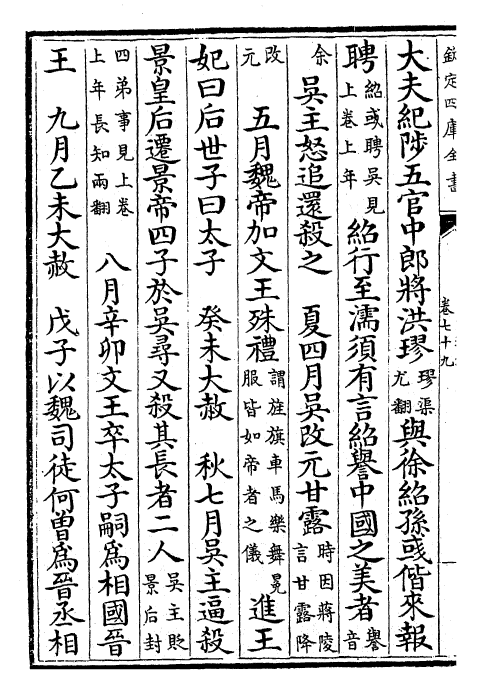 欽定四庫全書
卷七十九
大夫紀陟五官中郎將洪璆璆渠尤翻與徐紹孫彧偕來報
聘紹彧聘吳見上卷上年紹行至濡須有言紹譽中國之美者譽音
余吳主怒追還殺之　夏四月吳改元甘露時因蔣陵言甘露降
改元　五月魏帝加文王殊禮謂旌旗車馬樂舞冕服皆如帝者之儀進王
妃曰后世子曰太子　癸未大赦　秋七月吳主逼殺
景皇后遷景帝四子於吳尋又殺其長者二人吳主貶景后封
四弟事見上卷上年長知兩翻　八月辛卯文王卒太子嗣爲相國晉
王　九月乙未大赦　戊子以魏司徒何曾爲晉丞相